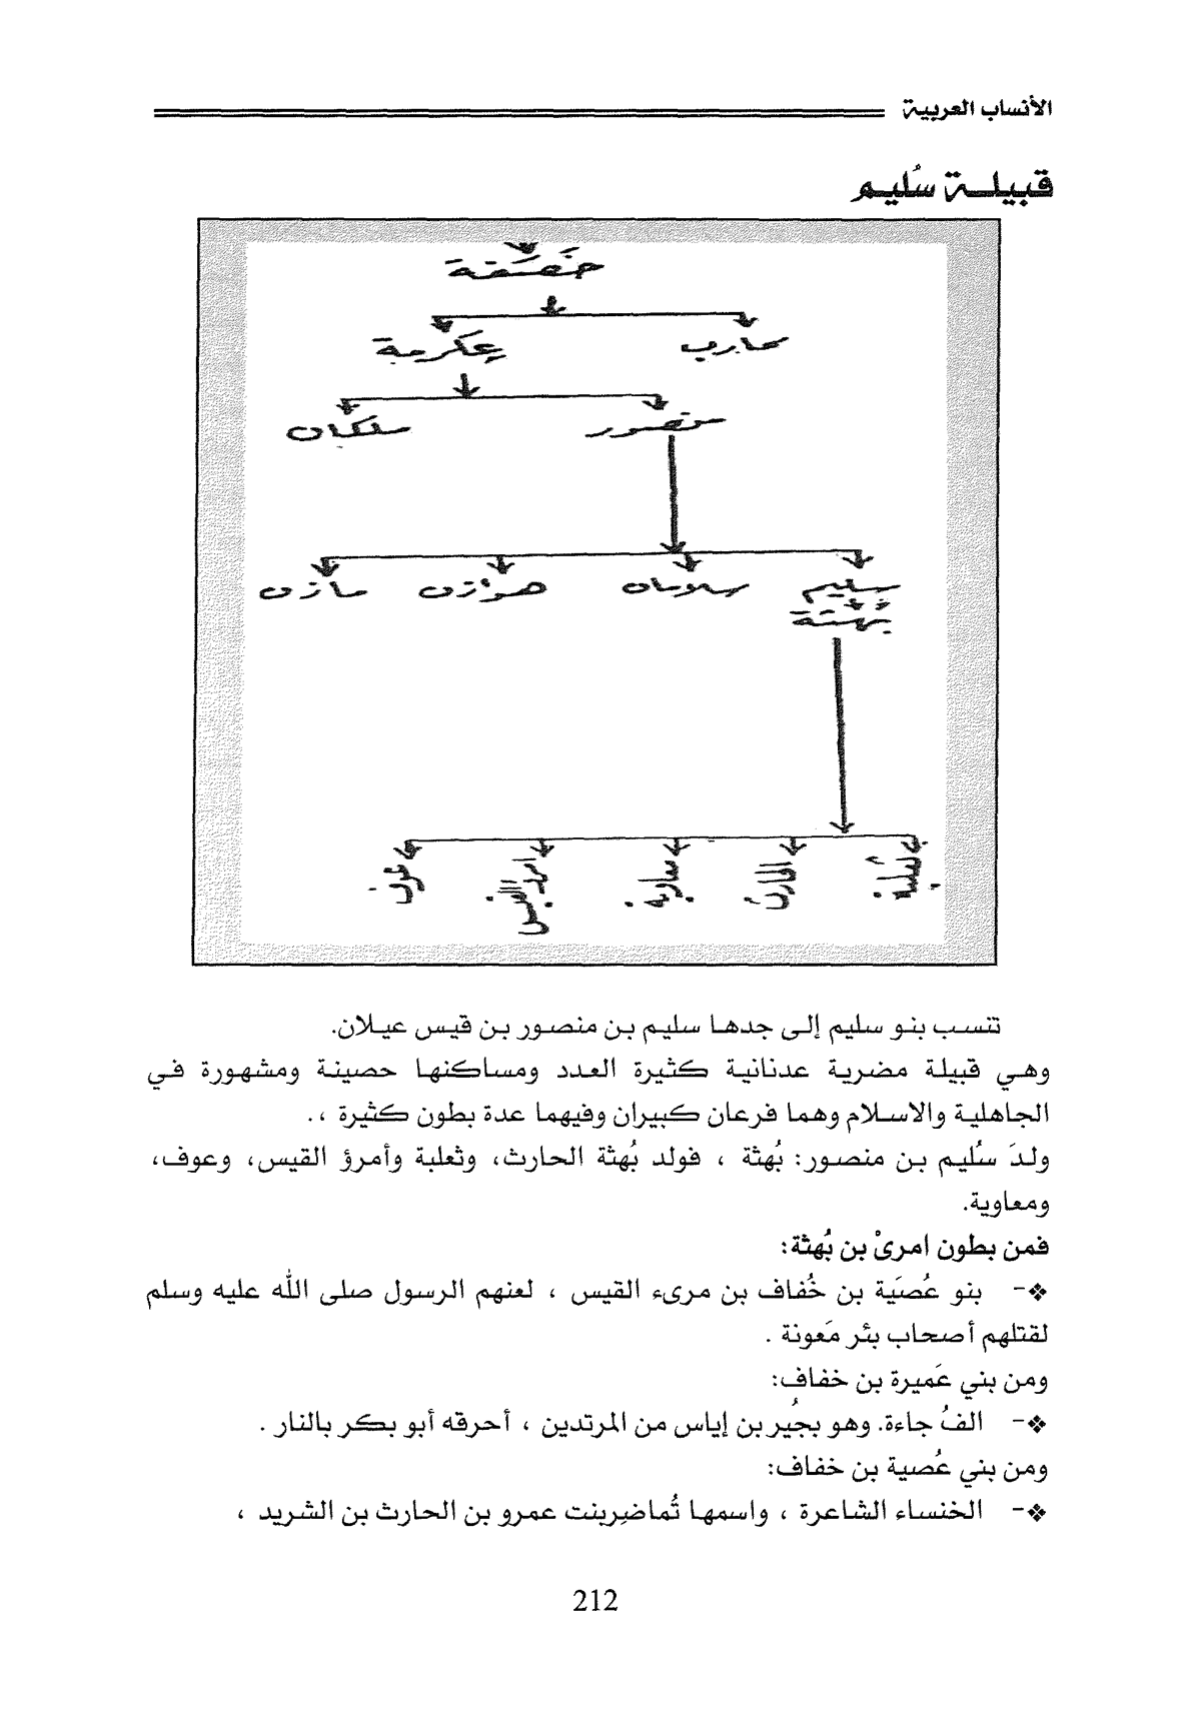 الأنساب العربية
قبيلة سُليم
خَصَفة
محارب عكرمة
منصور ملكان
سليم سلامان هوازن مازن
بُهثة
ثعلبة الحارث معاوية امرؤ القيس عوف
تنسب بنو سليم إلى جدها سليم بن منصور بن قيس عيلان.
وهي قبيلة مضرية عدنانية كثيرة العدد ومساكنها حصينة ومشهورة في
الجاهلية والاسلام وهما فرعان كبيران وفيهما عدة بطون كثيرة ،.
ولدَ سُليم بن منصور: بُهثة ، فولد بُهثة الحارث، وثعلبة وأمرؤ القيس، وعوف،
ومعاوية.
فمن بطون امرئْ بن بُهثة:
❖- بنو عُصَية بن خُفاف بن مرىء القيس ، لعنهم الرسول صلى الله عليه وسلم
لقتلهم أصحاب بئر مَعونة .
ومن بني عَميرة بن خفاف:
❖- الفُ جاءة. وهو بجُير بن إياس من المرتدين ، أحرقه أبو بكر بالنار .
ومن بني عُصية بن خفاف:
❖- الخنساء الشاعرة ، واسمها تُماضِربنت عمرو بن الحارث بن الشريد ،
212